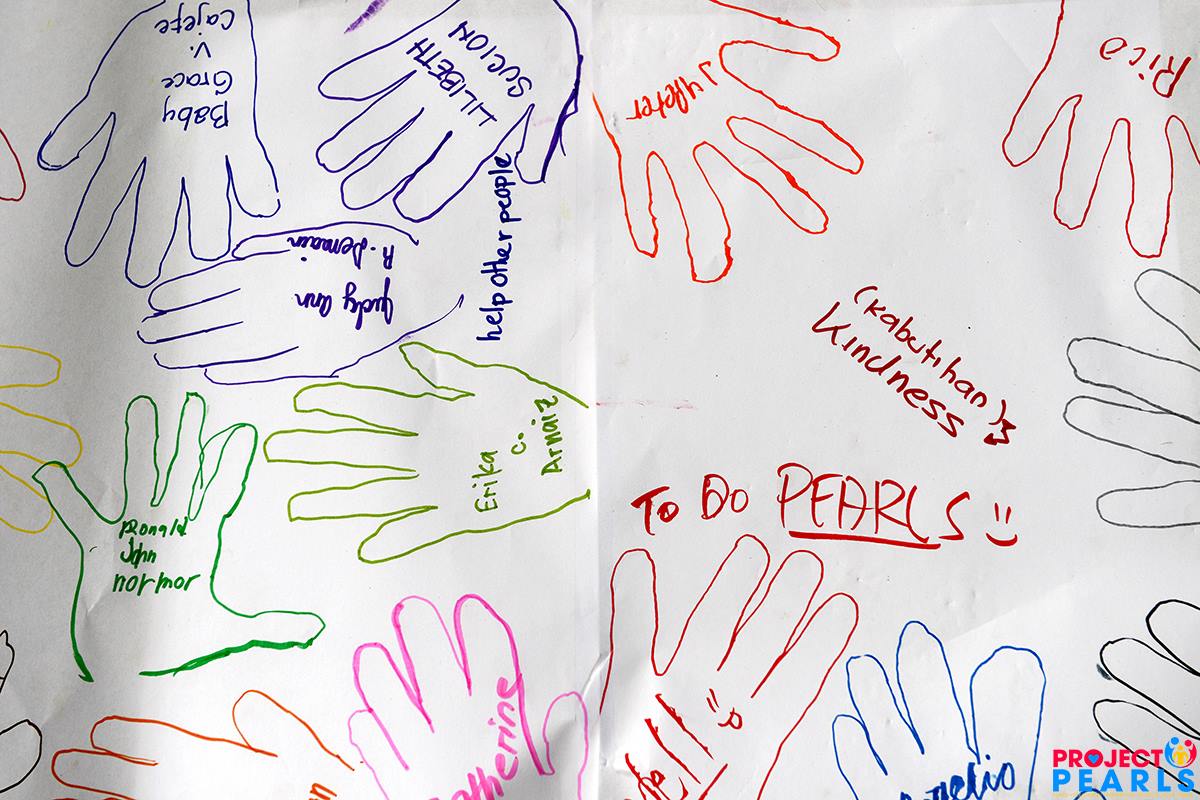 Baby
Grace
V.
Cajefe
LILIBETH
SUCION
Jupeter
Rica
help other people
Judy ann
R. Jemain
(kabutihan)
Kindness
Erika
C.
Arnaiz
To Do PEARLS
Ronald
John
normor
PROJECT
PEARLS